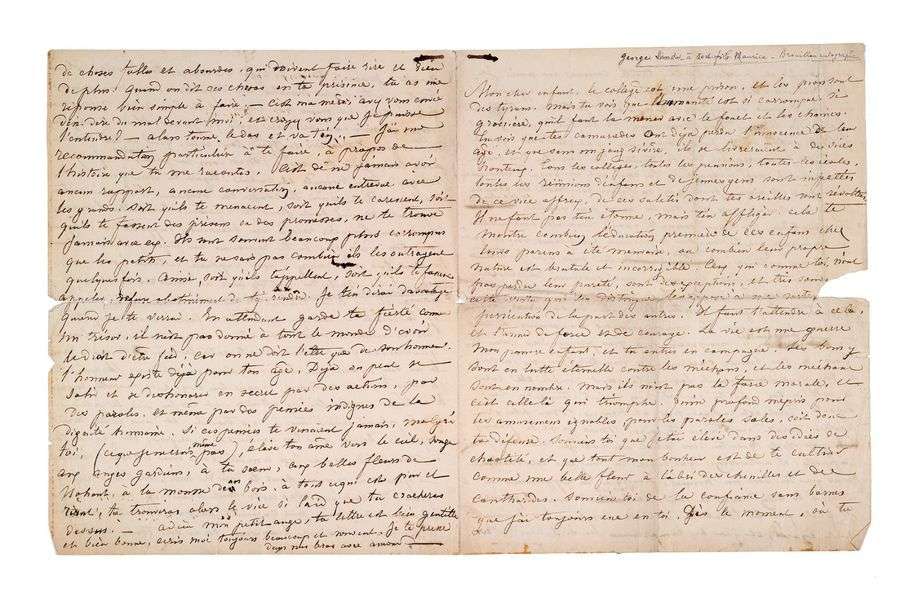 de choses folles et absurdes, qui doivent faire rire et rien
de plus. Quand on dit ces choses en ta présence, tu as une
réponse bien simple à faire. — C'est ma mère! avez vous envie
d'en dire du mal devant moi, et croyez vous que je puisse
l'entendre? — alors tourne le dos et va t'en. — J'ai une
recommandation particulière à te faire, à propos de
l'histoire que tu me racontes. C'est de ne jamais avoir
aucun rapport, aucune conversation, aucune entrevue avec
les grands. Soit qu'ils te menacent, soit qu'ils te caressent, soit
qu'ils te fassent des présens ou des promesses, ne te trouve
jamais avec eux. Ils sont souvent beaucoup plus corrompus
que les petits, et tu ne sais pas combien ils les outragent
quelquefois. Ainsi, soit qu'ils t'appellent, soit qu'ils te fassent
appeler, refuse obstinément de t'y rendre. Je t'en dirai davantage
quand je te verrai. En attendant garde ta fierté comme
un trésor, il n'est pas donné à tout le monde d'avoir
le droit d'être fier, car on ne doit l'être que de son honneur.
l'honneur existe déjà pour ton âge. Déjà on peut se
salir et se déshonorer en secret par des actions, par
des paroles, et même par des pensées indignes de la
dignité humaine. Si ces pensées te venaient jamais, malgré
toi, (ce que je ne crois même pas), élève ton âme vers le ciel, songe
aux anges gardiens, à ta sœur, aux belles fleurs de
Nohant, à la mousse des bois, à tout ce qui est pur et
riant, tu trouveras alors le vice si laid que tu cracheras
dessus. — adieu mon petit ange, ta lettre est bien gentille
et bien bonne, écris moi toujours beaucoup et souvent. Je te presse
dans mes bras avec amour.
George Sand à son fils Maurice. Brouillon autographe
Mon cher enfant, le collège est une prison, et les pions sont
des tyrans. Mais tu vois que l'humanité est si corrompue si
grossière, qu'il faut la mener avec le fouet et les chaines.
Tu vois que tes camarades ont déjà perdu l'innocence de leur
âge, et que sans un joug sévère, ils se livreraient à des vices
honteux. Tous les collèges, toutes les pensions, toutes les écoles
toutes les réunions d'enfans et de jeunes gens sont infectées
de ce vice affreux, de ces saletés dont tes oreilles sont révoltées.
Il ne faut pas t'en étonner, mais t'en affliger. cela te
montre combien l'éducation première de ces enfans chez
leurs parens a été mauvaise, ou combien leur propre
nature est brutale et incorrigible. Ceux qui comme toi, n'ont
pas perdu leur pureté, sont des exceptions, et très souvent
cette vertu qui les distingue les expose à une sorte de
persécution de la part des autres. Il faut t'attendre à cela,
et t'armer de force et de courage. La vie est une guerre
mon pauvre enfant, et tu entres en campagne. Les bons y
sont en lutte éternelle contre les méchans, et les méchans
sont en nombre. Mais ils n'ont pas la force morale, et
c'est celle là qui triomphe. Qu'un profond mépris pour
les amusemens ignobles, pour les paroles sales, soit donc
ta défense. Souviens toi que je t'ai élevé dans des idées de
chasteté, et que tout mon bonheur est de te cultiver
comme une belle fleur à l'abri des chenilles et des
cantharides. Souviens toi de la confiance sans bornes
que j'ai toujours eue en toi. Dès le moment, où tu